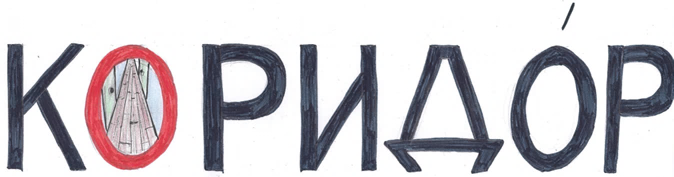 КОРИДО́Р